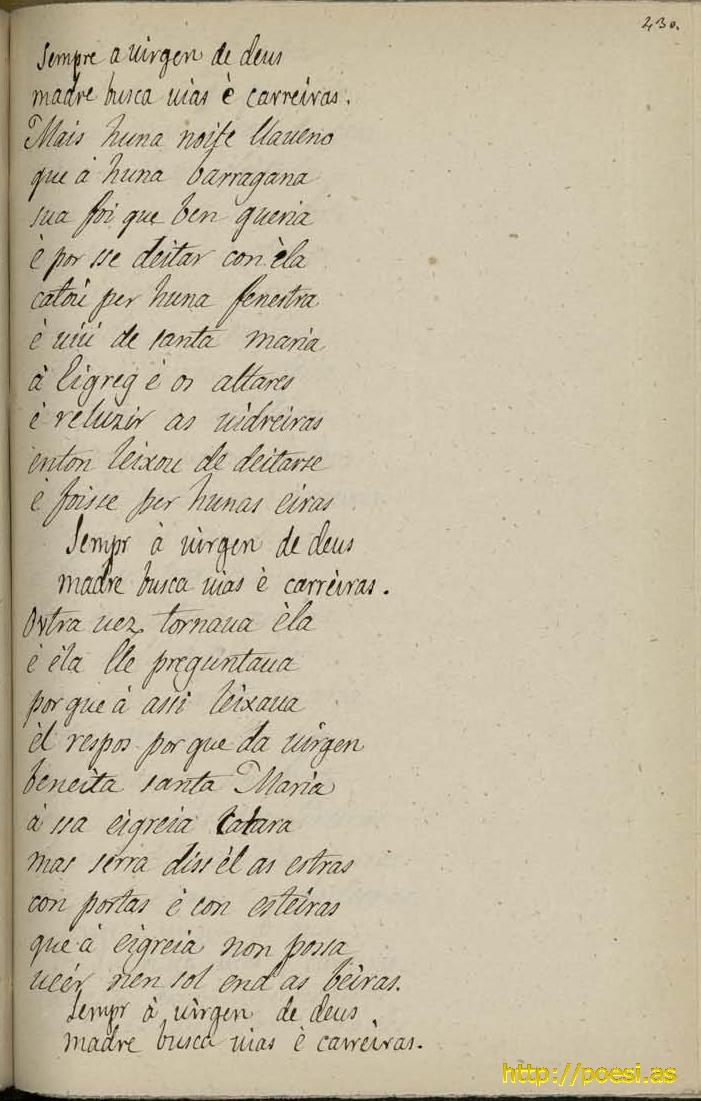 230.
Sempre a uirgen de deus
madre busca uias è carreiras.
Mais huna noite llaueno
que à huna barragana
sua foi que ben queria
è por sse deitar con èla
catoù per huna fenestra
è uiù de santa maria
à Eigreg è os altares
è reluzir as uidreiras
enton leixou de deitarse
è foisse per hunas eiras
Sempr à uirgen de deus
madre busca uias è carrèiras.
Outra uez tornaua èla
è èla lle preguntaua
por que à assi leixaua
èl respos por que da uirgen
beneita santa Maria
à ssa eigreia catara
mas serra diss èl as estras
con portas è con esteiras
que à eigreia non possa
ueér nen sol end as bèiras.
Sempr à uirgen de deus
madre busca uias è carreiras.
http://poesi.as